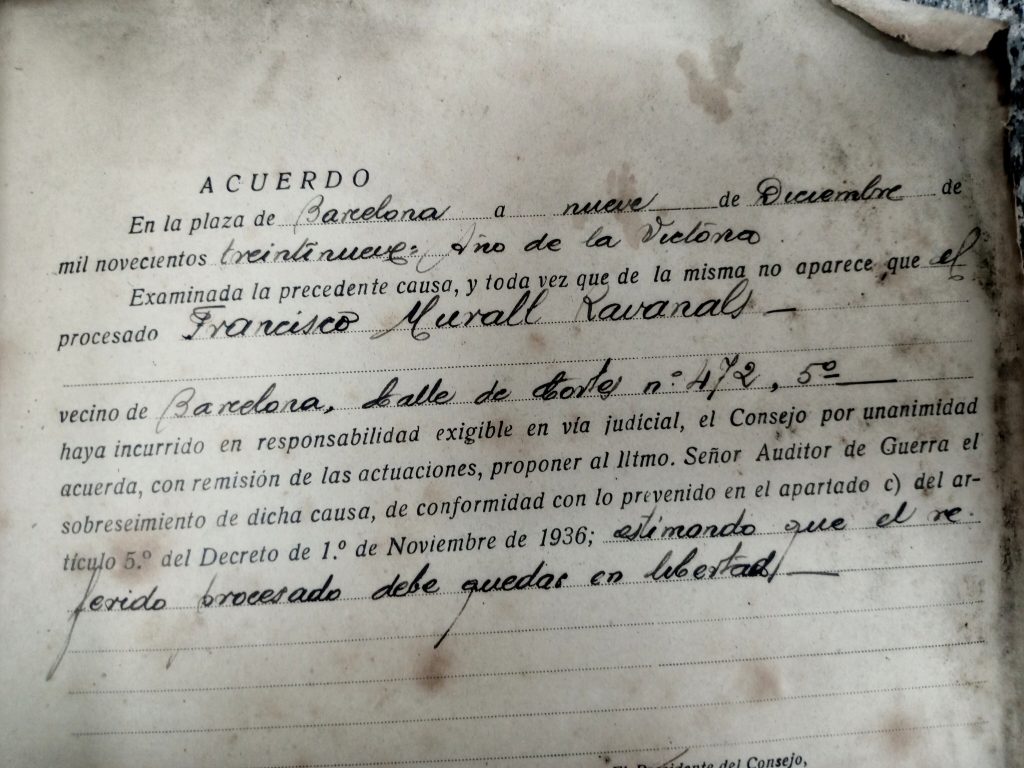 ACUERDO
En la plaza de Barcelona a nueve de Diciembre de
mil novecientos treintinueve= Año de la Victoria
Examinada la precedente causa, y toda vez que de la misma no aparece que el
procesado Francisco Murall Ravanals —
vecino de Barcelona, Calle de Cortes nº 472, 5º —
haya incurrido en responsabilidad exigible en vía judicial, el Consejo por unanimidad
acuerda, con remisión de las actuaciones, proponer al Iltmo. Señor Auditor de Guerra el
sobreseimiento de dicha causa, de conformidad con lo prevenido en el apartado c) del ar-
tículo 5.º del Decreto de 1.º de Noviembre de 1936; estimando que el re-
ferido procesado debe quedar en libertad. —
El Presidente del Consejo,